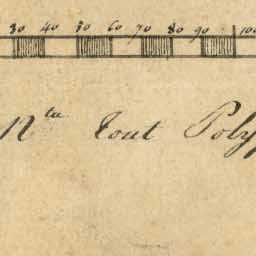 30 40 50 60 70 80 90 100
N ta Tout Poly